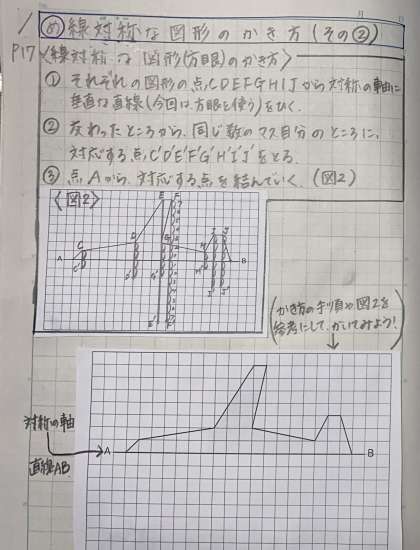 め 線対称な図形のかき方(その②)
P17 〈線対称な図形(方眼)のかき方〉
① それぞれの図形の点CDEFGHIJから対称の軸に
垂直な直線(今回は方眼を使う)をひく。
② 交わったところから、同じ数のマス目分のところに、
対応する点C'D'E'F'G'H'I'J'をとる。
③ 点Aから、対応する点を結んでいく。(図2)
〈図2〉
E F
I J
C D G H
A B
かき方の手順や図2を
参考にして、かいてみよう!
対称の軸
直線AB
A B